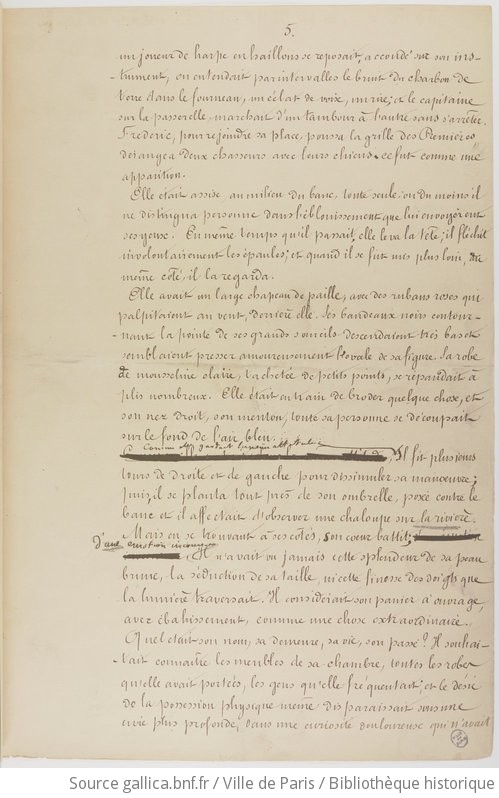 5.
un joueur de harpe en haillons se reposait, accoudé sur son ins-
-trument, on entendait par intervalles le bruit du charbon de
terre dans le fourneau, un éclat de voix, un rire; et le capitaine
sur la passerelle marchait d'un tambour à l'autre sans s'arrêter.
Frédéric, pour rejoindre sa place, poussa la grille des Premières,
dérangea deux chasseurs avec leurs chiens. ce fut comme une
apparition.
Elle était assise au milieu du banc, toute seule; ou du moins il
ne distingua personne dans l'éblouissement que lui envoyèrent
ses yeux. En même temps qu'il passait, elle leva la tête; il fléchit
involontairement les épaules; et quand il se fut mis plus loin, du
même côté, il la regarda.
Elle avait un large chapeau de paille, avec des rubans roses qui
palpitaient au vent, derrière elle. ses bandeaux noirs contour-
-nant la pointe de ses grands sourcils descendaient très bas et
semblaient presser amoureusement l'ovale de sa figure. sa robe
de mousseline claire, tachetée de petits points, se répandait à
plis nombreux. Elle était en train de broder quelque chose, et
son nez droit, son menton, toute sa personne se découpait
sur le fond de l'air bleu.
Comme elle gardait la même attitude, Il fit plusieurs
tours de droite et de gauche pour dissimuler sa manœuvre;
puis, il se planta tout près de son ombrelle, posée contre le
banc et il affectait d'observer une chaloupe sur la rivière.
Mais en se trouvant à ses côtés, son cœur battit
d'une émotion inconnue. Il n'avait vu jamais cette splendeur de sa peau
brune, la séduction de sa taille, ni cette finesse des doigts que
la lumière traversait. Il considérait son panier à ouvrage,
avec ébahissement, comme une chose extraordinaire.
Quel était son nom, sa demeure, sa vie, son passé? Il souhai-
-tait connaître les meubles de sa chambre, toutes les robes
qu'elle avait portées, les gens qu'elle fréquentait; et le désir
de la possession physique même disparaissait sous une
envie plus profonde, dans une curiosité douloureuse qui n'avait
Source gallica.bnf.fr / Ville de Paris / Bibliothèque historique